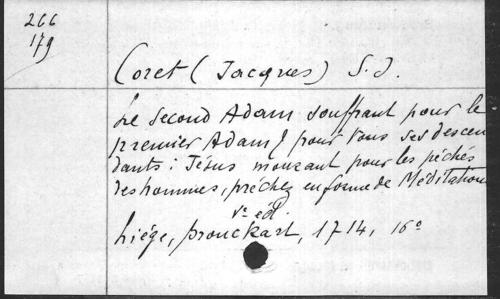 266
179
Coret (Jacques) S.J.
Le Second Adam souffrant pour le
premier Adam & pour tous ses descen
dants : Jésus mourant pour les péchés
des hommes, prêchez en forme de Méditation
Vᵉ éd.
Liége, Bronckart, 1714, 16°